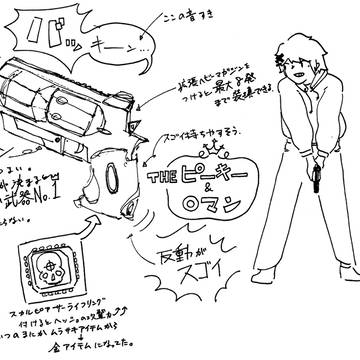 バッ
キーン…
ここの音すき
拡張ヘビーマガジンを
つけると最大8発
まで装填できる。
スゴイ持ちやすそう。
THE ピーキー
&
ロマン
反動が
スゴイ
武器No.1
スカルピアサーライフリング
付けるとヘッショの攻撃力↑↑
いつのまにかムラサキアイテムから
↓
金アイテムになってた。